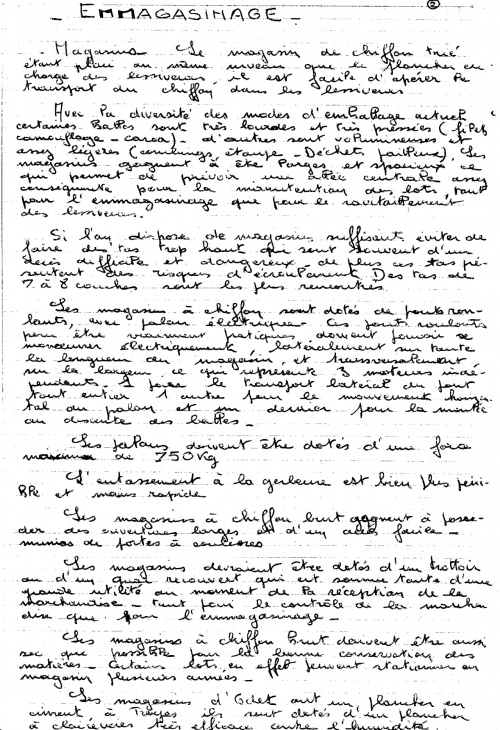 - EMMAGASINAGE -
2
Magasins Le magasin de chiffon trié
étant placé au même niveau que le plancher en
charge des lessiveurs, il est facile d'opérer le
transport du chiffon dans les lessiveurs.
Avec la diversité des modes d'emballage actuels
certaines Balles sont très lourdes et très pressées (
camouflage - coros) d'autres sont volumineuses et
assez légères ( étoupe - Déchets ). Les
magasins gagnent à être larges et spacieux ce
qui permet de prévoir une allée centrale assez
conséquente pour la manutention des lots, tant
pour l'emmagasinage que pour le ravitaillement
des lessiveurs.
Si l'on dispose de magasins suffisants, éviter de
faire des tas trop haut qui sont souvent d'un
accès difficile et dangereux - de plus ces tas pré-
sentent des risques d'écroulement. Des tas de
7 à 8 couches sont les plus rencontrés.
Les magasins à chiffon sont dotés de ponts rou-
lants, avec palan électrique. Ces ponts roulants
pour être vraiment pratiques doivent pouvoir se
manœuvrer électriquement, latéralement sur toute
la longueur du magasin, et transversalement
sur la largeur ce qui représente 3 moteurs indé-
pendants. 1 pour le transport latéral du pont
tout entier 1 autre pour le mouvement horizon-
tal du palan et un dernier pour la montée
ou descente des balles -
Les palans doivent être dotés d'une force
maxima de 750 kg
L'entassement à la gerbeuse est bien plus péni-
ble et moins rapide
Les magasins à chiffon brut gagnent à possé-
der des ouvertures larges et d'un accès facile -
munies de portes à coulisses
Les magasins devraient être dotés d'un trottoir
ou d'un quai recouvert qui est somme toute d'une
grande utilité au moment de la réception de la
marchandise - tant pour le contrôle de la marchan
dise que pour l'emmagasinage -
Les magasins à chiffon Brut doivent être aussi
sec que possible pour la bonne conservation des
matières - Certains lots en effet peuvent stationner en
magasin plusieurs années -
Les magasins d'Odet ont un plancher en
ciment à Troyes ils sont dotés d'un plancher
à claires-voies très efficace contre l'humidité.